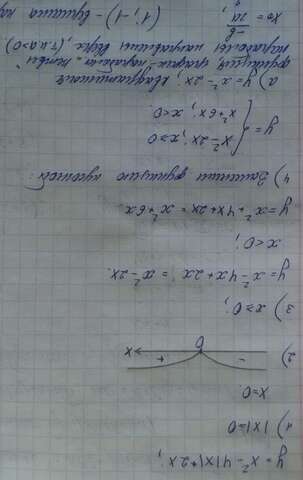 y = x² - 4|x| + 2x;
1) |x| = 0
x = 0.
2) - 0 + x
3) x ≥ 0;
y = x² - 4x + 2x = x² - 2x.
x < 0;
y = x² + 4x + 2x = x² + 6x
4) Запишем функцию кусочной:
y = { x² - 2x, x ≥ 0
x + 6x, x < 0.
а) y = x² - 2x; квадратичная
функция, график - парабола, ветви
параболы направлены вверх (т.к a>0)
x₀ = -b/2a (1; -1) - вершина